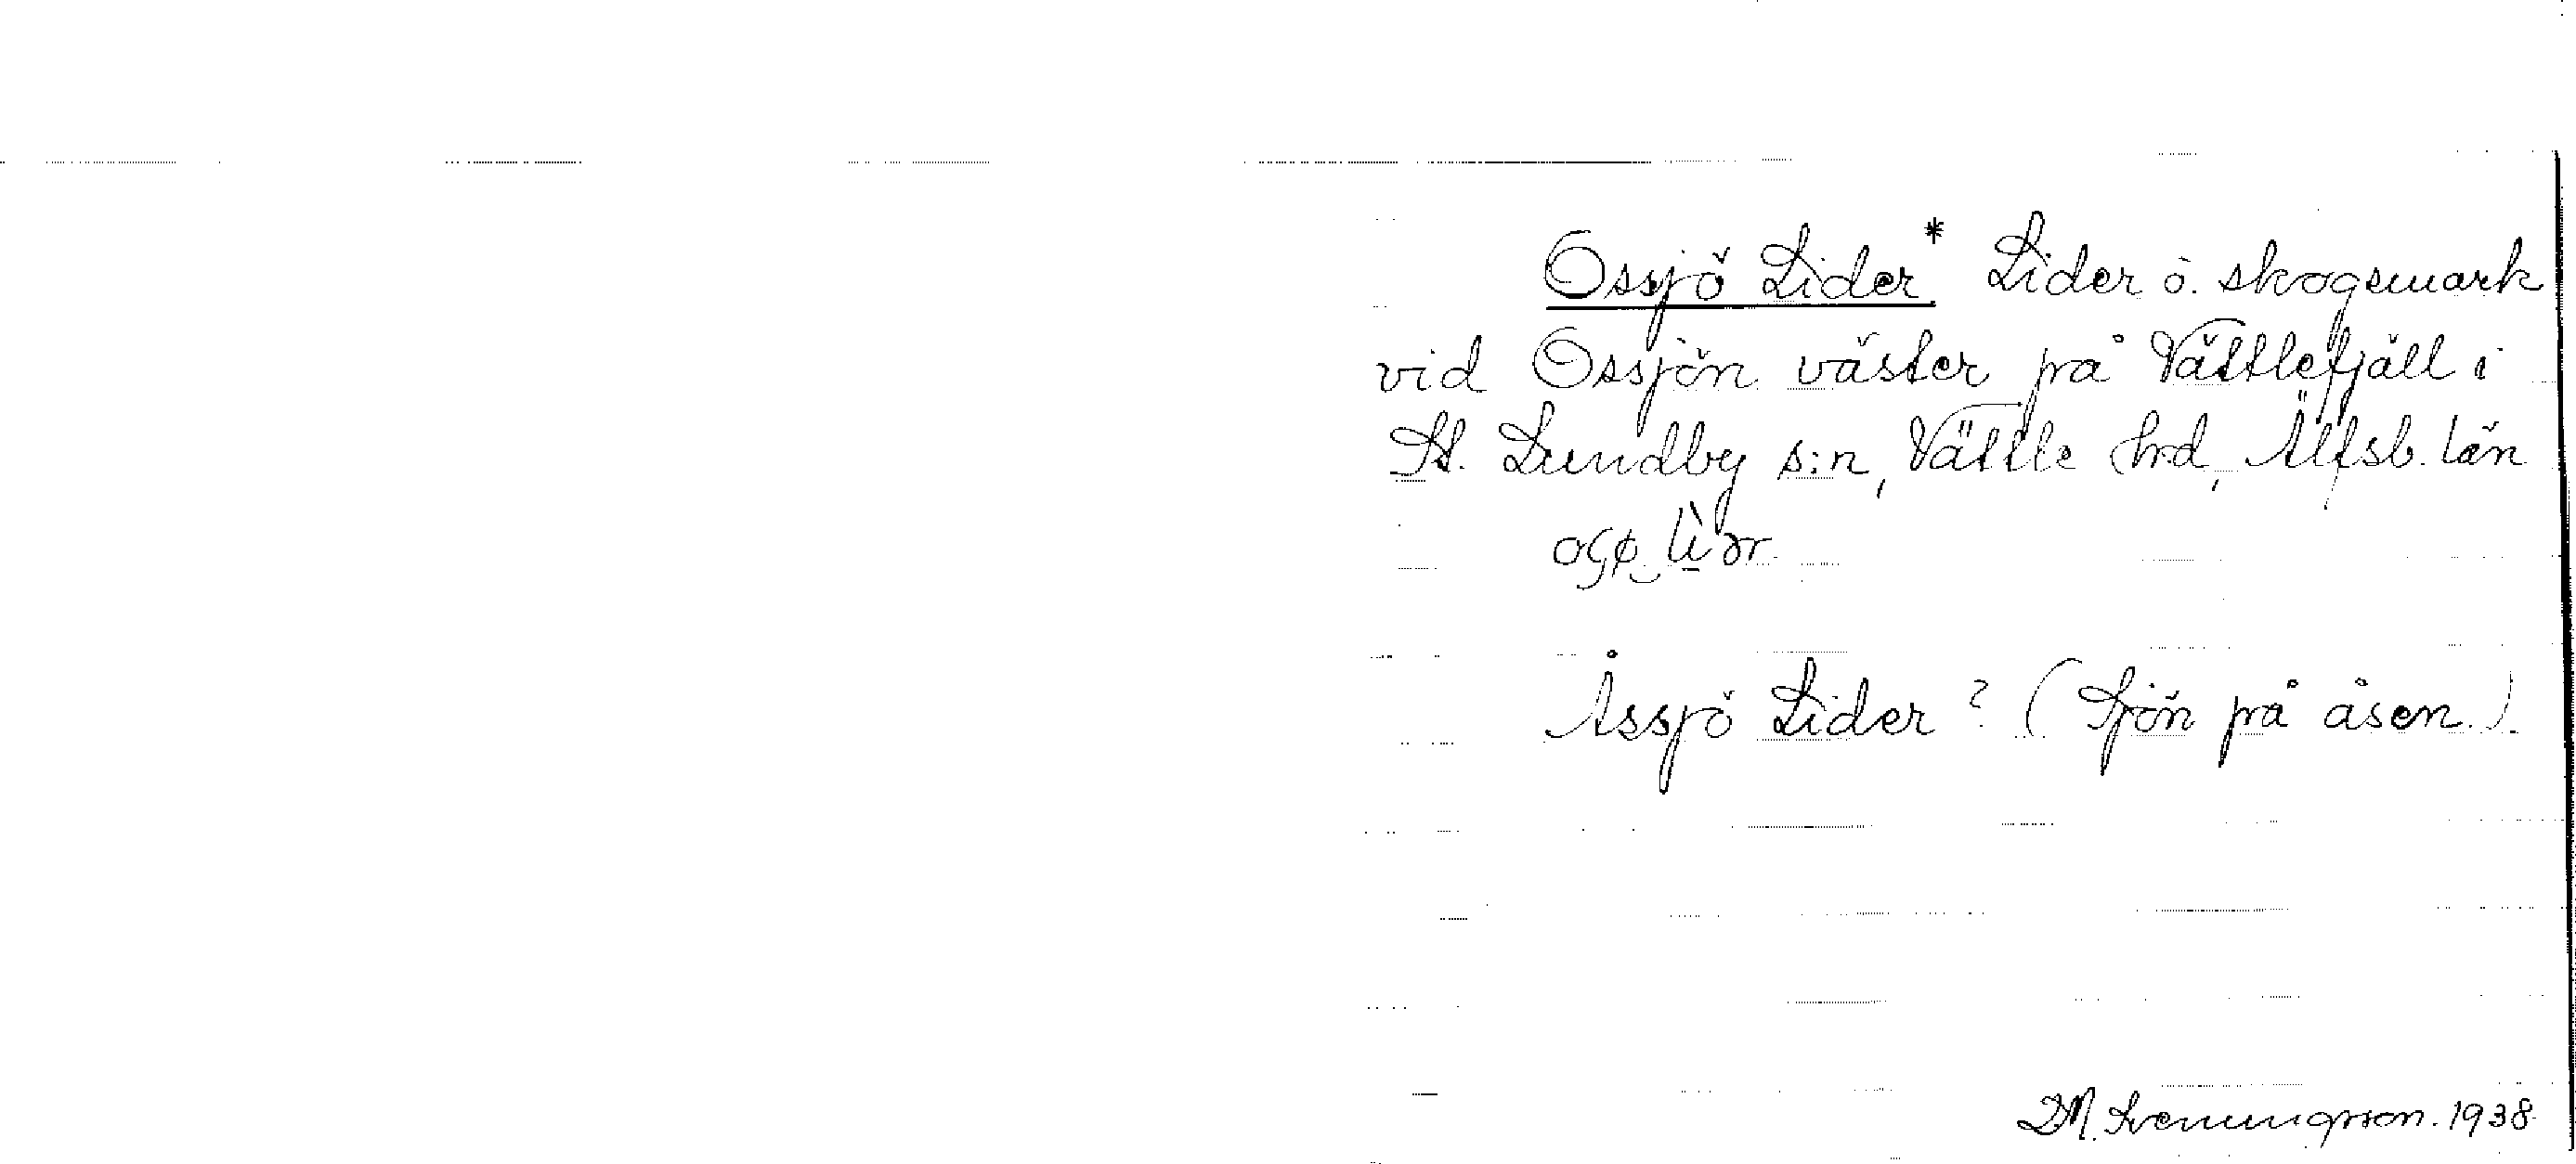 Ossjö Lider* Lider o. skogsmark
vid Ossjön väster på Vättlefjäll i
St. Lundby s:n, Vättle hrd, Älfsb. län
Åssjö Lider? (Sjön på åsen.)
D.N. Svenungsson. 1938